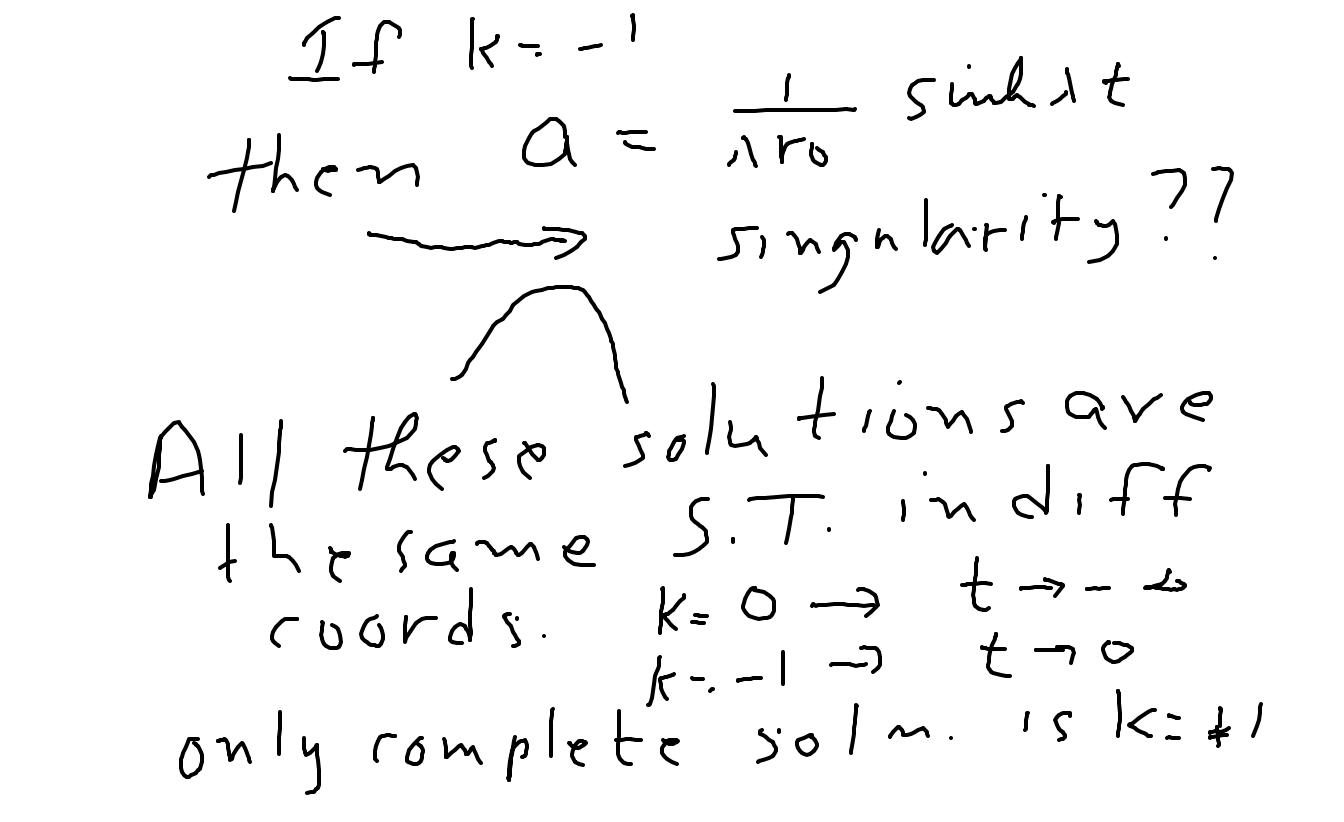 If k = -1
then a = 1/λr₀ sinh λt
→ singularity ??
All these solutions are
the same S.T. in diff
coords. k = 0 → t → -∞
k = -1 → t → 0
only complete soln. is k = +1